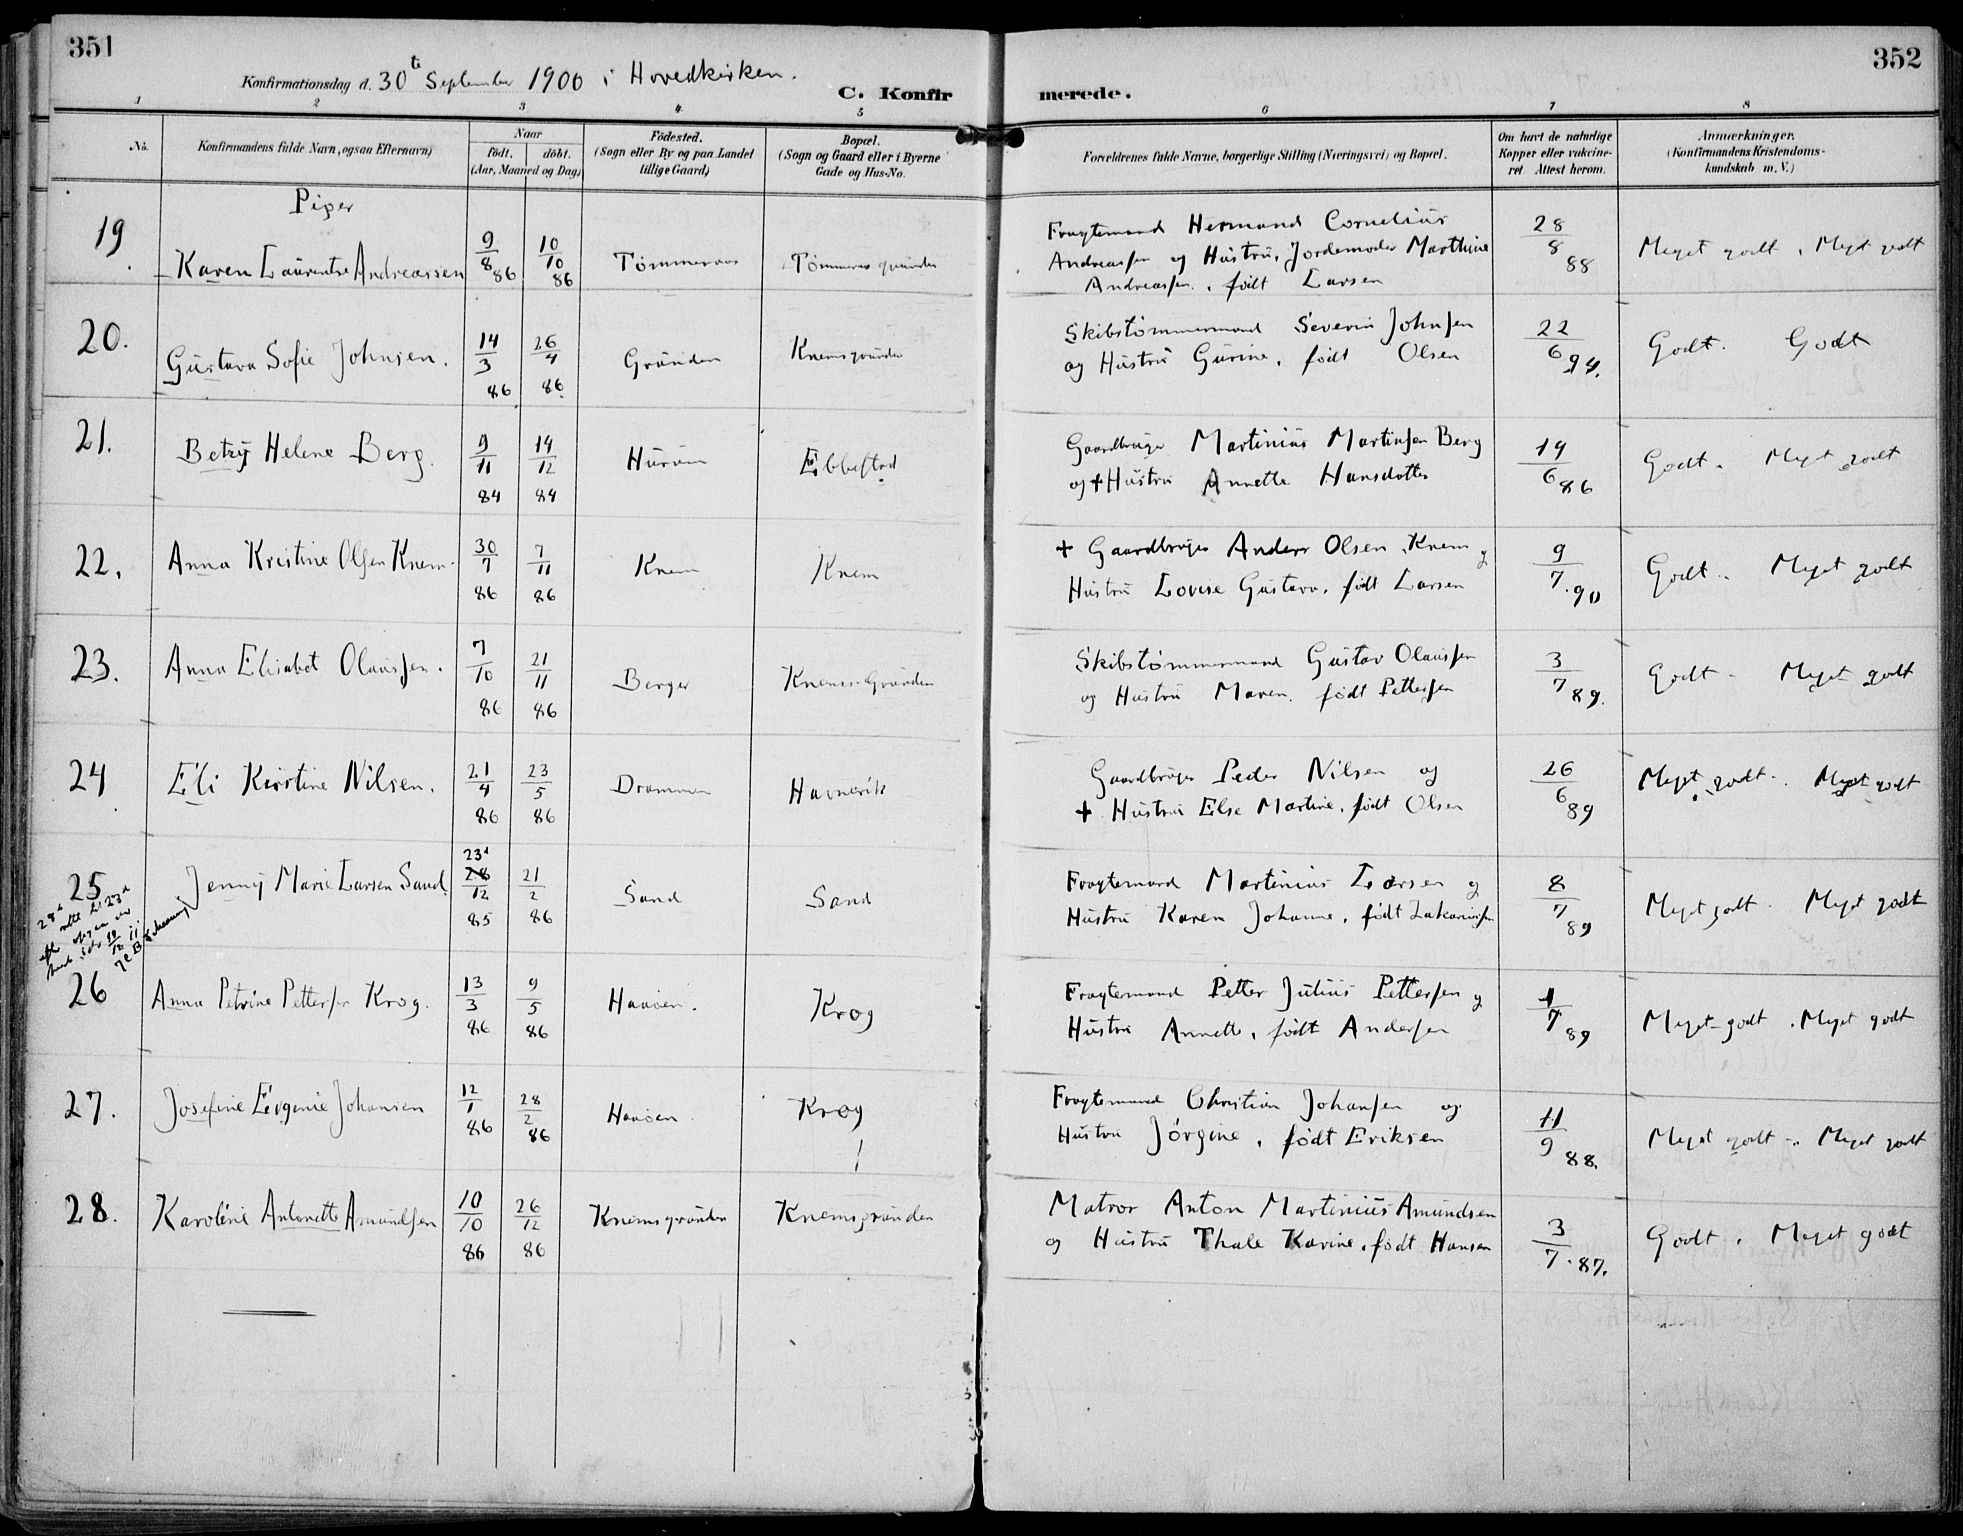 351
352
Konfirmationsdag d. 30t September 1900 i Hovedkirken.
C. Konfirmerede.
1 2 3 4 5 6 7 8
No.
Konfirmandens fulde Navn, ogsaa Efternavn)
Naar
födt. döbt.
(Aar, Maaned og Dag)
Födested.
(Sogn eller By og paa Landet
tillige Gaard)
Bopæl.
(Sogn og Gaard eller i Byerne
Gade og Hus-No.
Forældrenes fulde Navne, borgerlige Stilling (Næringsvei) og Bopæl.
Om havt de naturlige
Kopper eller vakcine-
ret. Attest herom.
Anmærkninger.
(Konfirmandens Kristendoms-
kundskab m. V.)
Piger
19. Karen Laurentse Andreassen 9/8 86 10/10 86 Tømmeraas Tømmeraasgrunden
Fragtemand Hermand Cornelius
Andreassen og Hustru, Jordemoder Marthine
Andreassen, født Larsen
28/8 88 Meget godt. Meget godt
20. Gustava Sofie Johnsen. 14/3 86 26/4 86 Grunden Knemsgrunden
Skibstømmermand Severin Johnsen
og Hustru Gurine, født Olsen
22/6 94. Godt. Godt
21. Betzy Helene Berg. 9/11 84 14/12 84 Hurum Ebbestad
Gaardbruger Martinius Martinsen Berg
og + Hustru Annette Hansdatter
14/6 86 Godt. Meget godt
22. Anna Kristine Olsen Knem. 30/7 86 7/11 86 Knem Knem
+ Gaardbruger Anders Olsen Knem og
Hustru Lovise Gustava, født Larsen
9/7.90 Godt. Meget godt
23. Anna Elisabet Olaussen. 7/10 86 21/11 86 Berger Knems Grunden
Skibstømmermand Gustav Olaussen
og Hustru Maren, født Pettersen
3/7 89. Godt - Meget godt
24 Eli Kirstine Nilsen. 21/4 86 23/5 86 Drammen Havnevik
Gaardbruger Peder Nilsen og
+ Hustru Else Martine, født Olsen
26/6 89 Meget godt. Meget godt
25 Jenny Marie Larsen Sand. 23d 28/12 85 21/2 86 Sand Sand
28d rettet til 23d
Fragtemand Martinius Larsen og
Hustru Karen Johanne, født Zakariassen
8/7 89 Meget godt. Meget godt
26 Anna Petrine Pettersen Krog. 13/3 86 9/5 86 Haaøen. Krog
Fragtemand Petter Julius Pettersen og
Hustru Annette, født Andersen
1/7 89 Meget godt. Meget godt
27. Josefine Evgenie Johansen 12/1 86 28/2 86 Haaøen Krog
Fragtemand Christian Johansen og
Hustru Jørgine, født Eriksen
11/9 88. Meget godt. Meget godt
28. Karoline Antonette Amundsen 10/10 86 26/12 86 Knemsgrunden Knemsgrunden
Matros Anton Martinius Amundsen
og Hustru Thale Karine, født Hansen
3/7.87. Godt. Meget godt